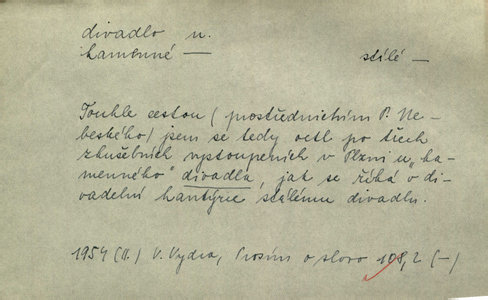 divadlo n.
kamenné — stálé —
Touhle cestou (prostřednictvím P. Ne-
beského) jsem se tedy octl po třech
zkušebních vystoupeních v Plzni u „ka-
menného" divadla, jak se říká v di-
vadelní hantýrce stálému divadlu.
1954 (II.) V. Vydra, Prosím o slovo 108,2 (—)